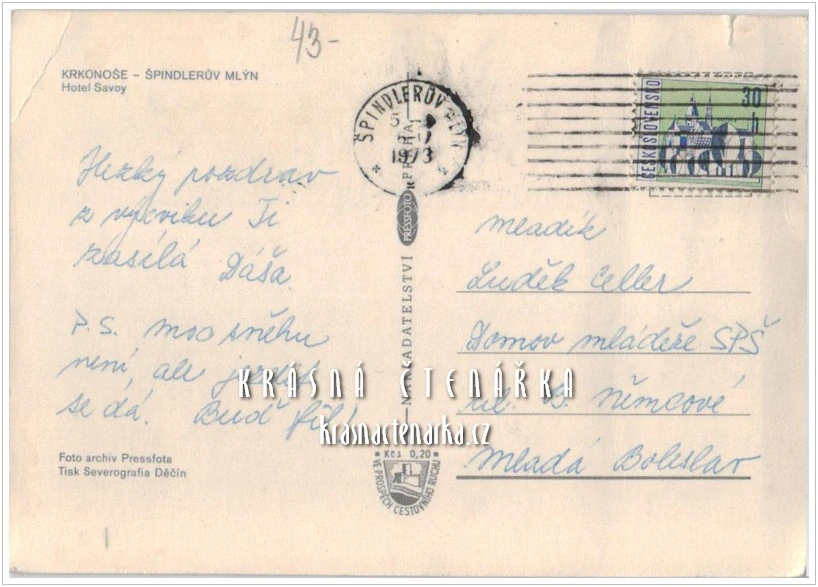 43-
KRKONOŠE – ŠPINDLERŮV MLÝN
Hotel Savoy
ŠPINDLERŮV MLÝN
1973
ČESKOSLOVENSKO
30
h
Hezký pozdrav
z výcviku Ti
zasílá Dáša.
P.S. moc sněhu
není, ale jezdit
se dá. Buď fit!
Foto archiv Pressfota
Tisk Severografia Děčín
NAKLADATELSTVÍ PRESSFOTO PRAHA
Kčs 0,20
VE PROSPĚCH CESTOVNÍHO RUCHU
mladík
Luděk Celler
Domov mládeže SPŠ
ul. B. Němcové
Mladá Boleslav
KRÁSNÁ ČTENÁŘKA
krasnactenarka.cz